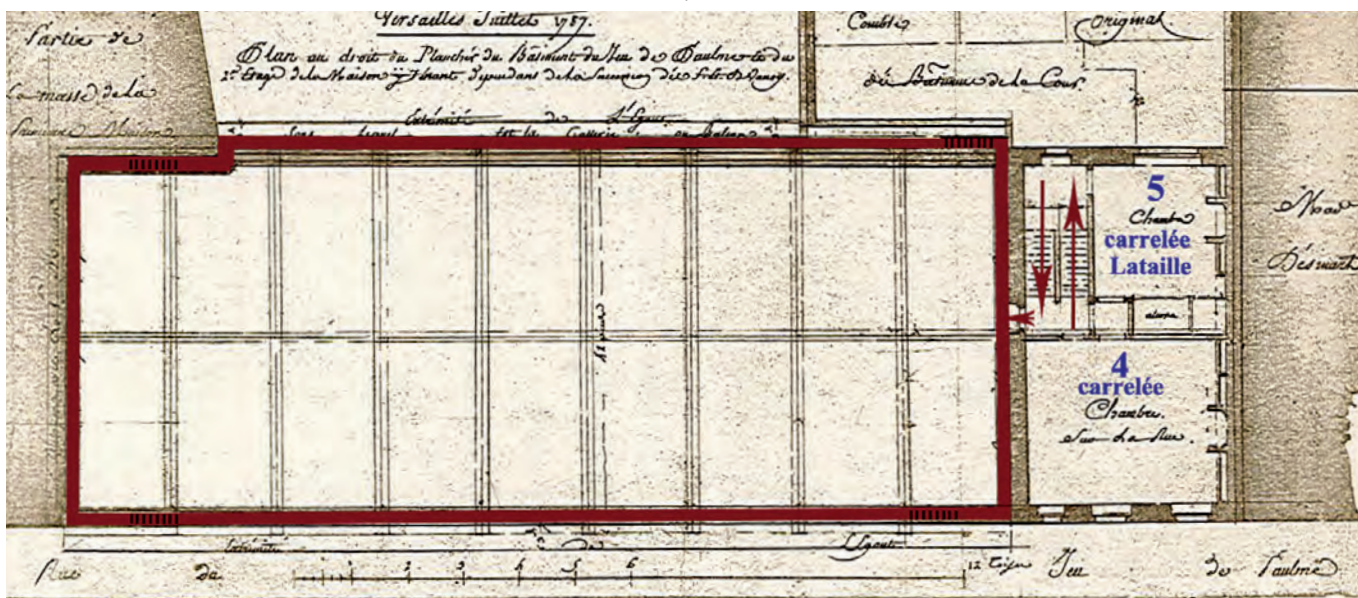 Versailles Juillet 1787.
Plan au droit du Plancher du Batiment du Jeu de Paulme et du
2e. Etage de la Maison y Tenant dependans de la Succession
Partie de
La masse de la
Maison
Comble
Original
du Batiment de la Cour.
Extrémité de L'Egout
Sous lequel Est la Gallerie
5
Chambre
carrelée
Lataille
alcove
4
carrelée
Chambre
Sur La Rue.
Extrémité de L'Egout
1 2 3 4 5 6 12 Toises
Rue du Jeu de Paulme